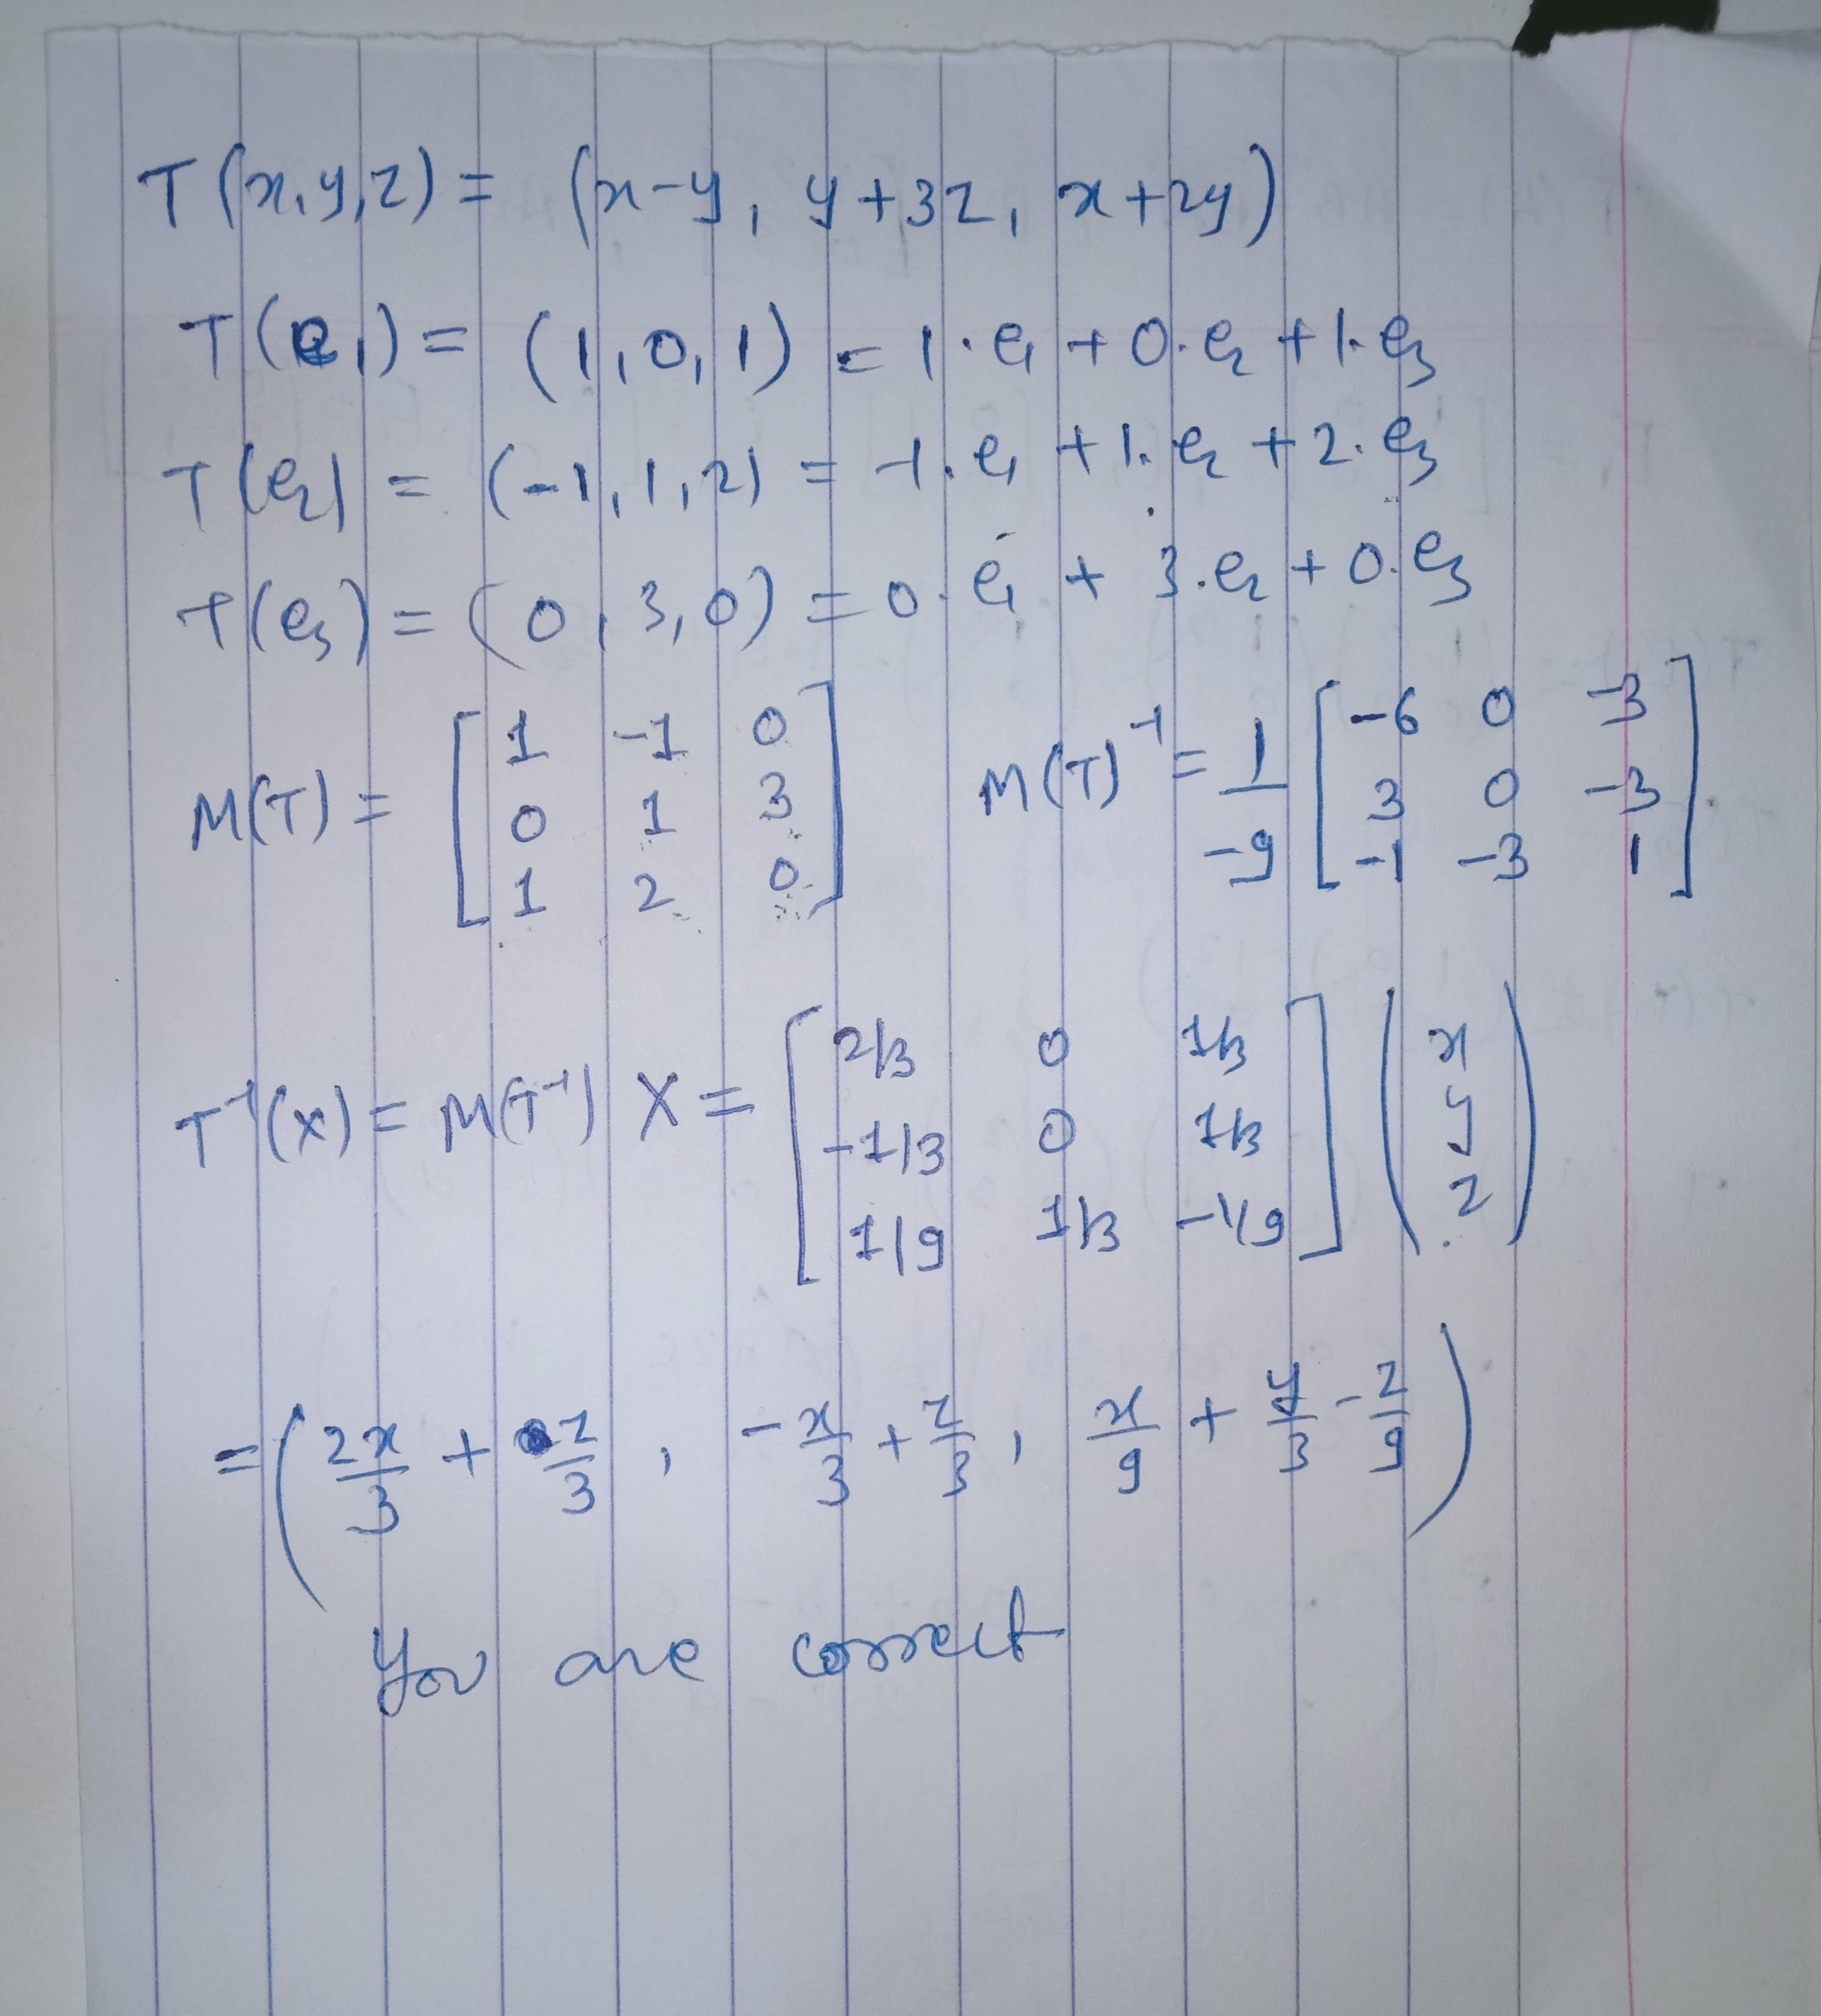 T(x,y,z) = (x-y, y+3z, x+2y)
T(e₁) = (1,0,1) = 1·e₁ + 0·e₂ + 1·e₃
T(e₂) = (-1,1,2) = -1·e₁ + 1·e₂ + 2·e₃
T(e₃) = (0,3,0) = 0·e₁ + 3·e₂ + 0·e₃
M(T) = [1 -1 0; 0 1 3; 1 2 0] M(T)⁻¹ = 1/-9 [-6 0 -3; 3 0 -3; -1 -3 1]
T⁻¹(x) = M(T⁻¹) X = [2/3 0 1/3; -1/3 0 1/3; 1/9 1/3 -1/9] (x y z)
= (2x/3 + z/3, -x/3 + z/3, x/9 + y/3 - z/9)
You are correct